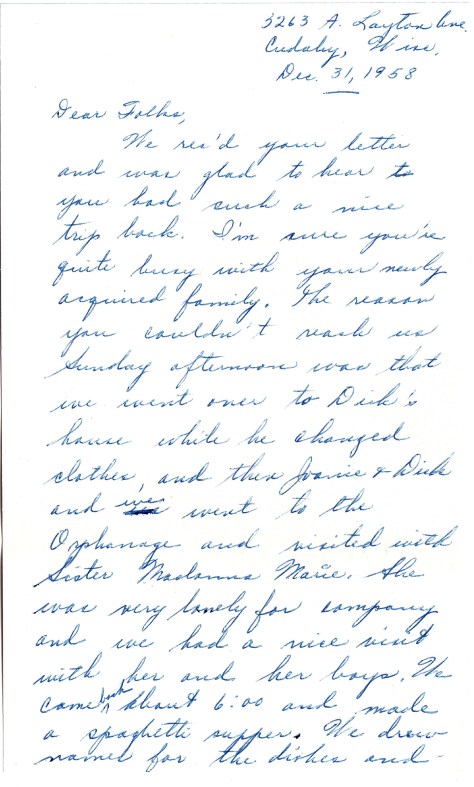 3263 A. Layton Ave.
Cudahy, Wisc.
Dec. 31, 1958
Dear Folks,
We rec'd your letter
and was glad to hear to
you had such a nice
trip back. I'm sure you're
quite busy with your newly
acquired family. The reason
you couldn't reach us
Sunday afternoon was that
we went over to Dick's
house while he changed
clothes, and then Joanie & Dick
and we went to the
Orphanage and visited with
Sister Madonna Marie. She
was very lonely for company
and we had a nice visit
with her and her boys. We
came back about 6:00 and made
a spaghetti supper. We drew
names for the dishes and-